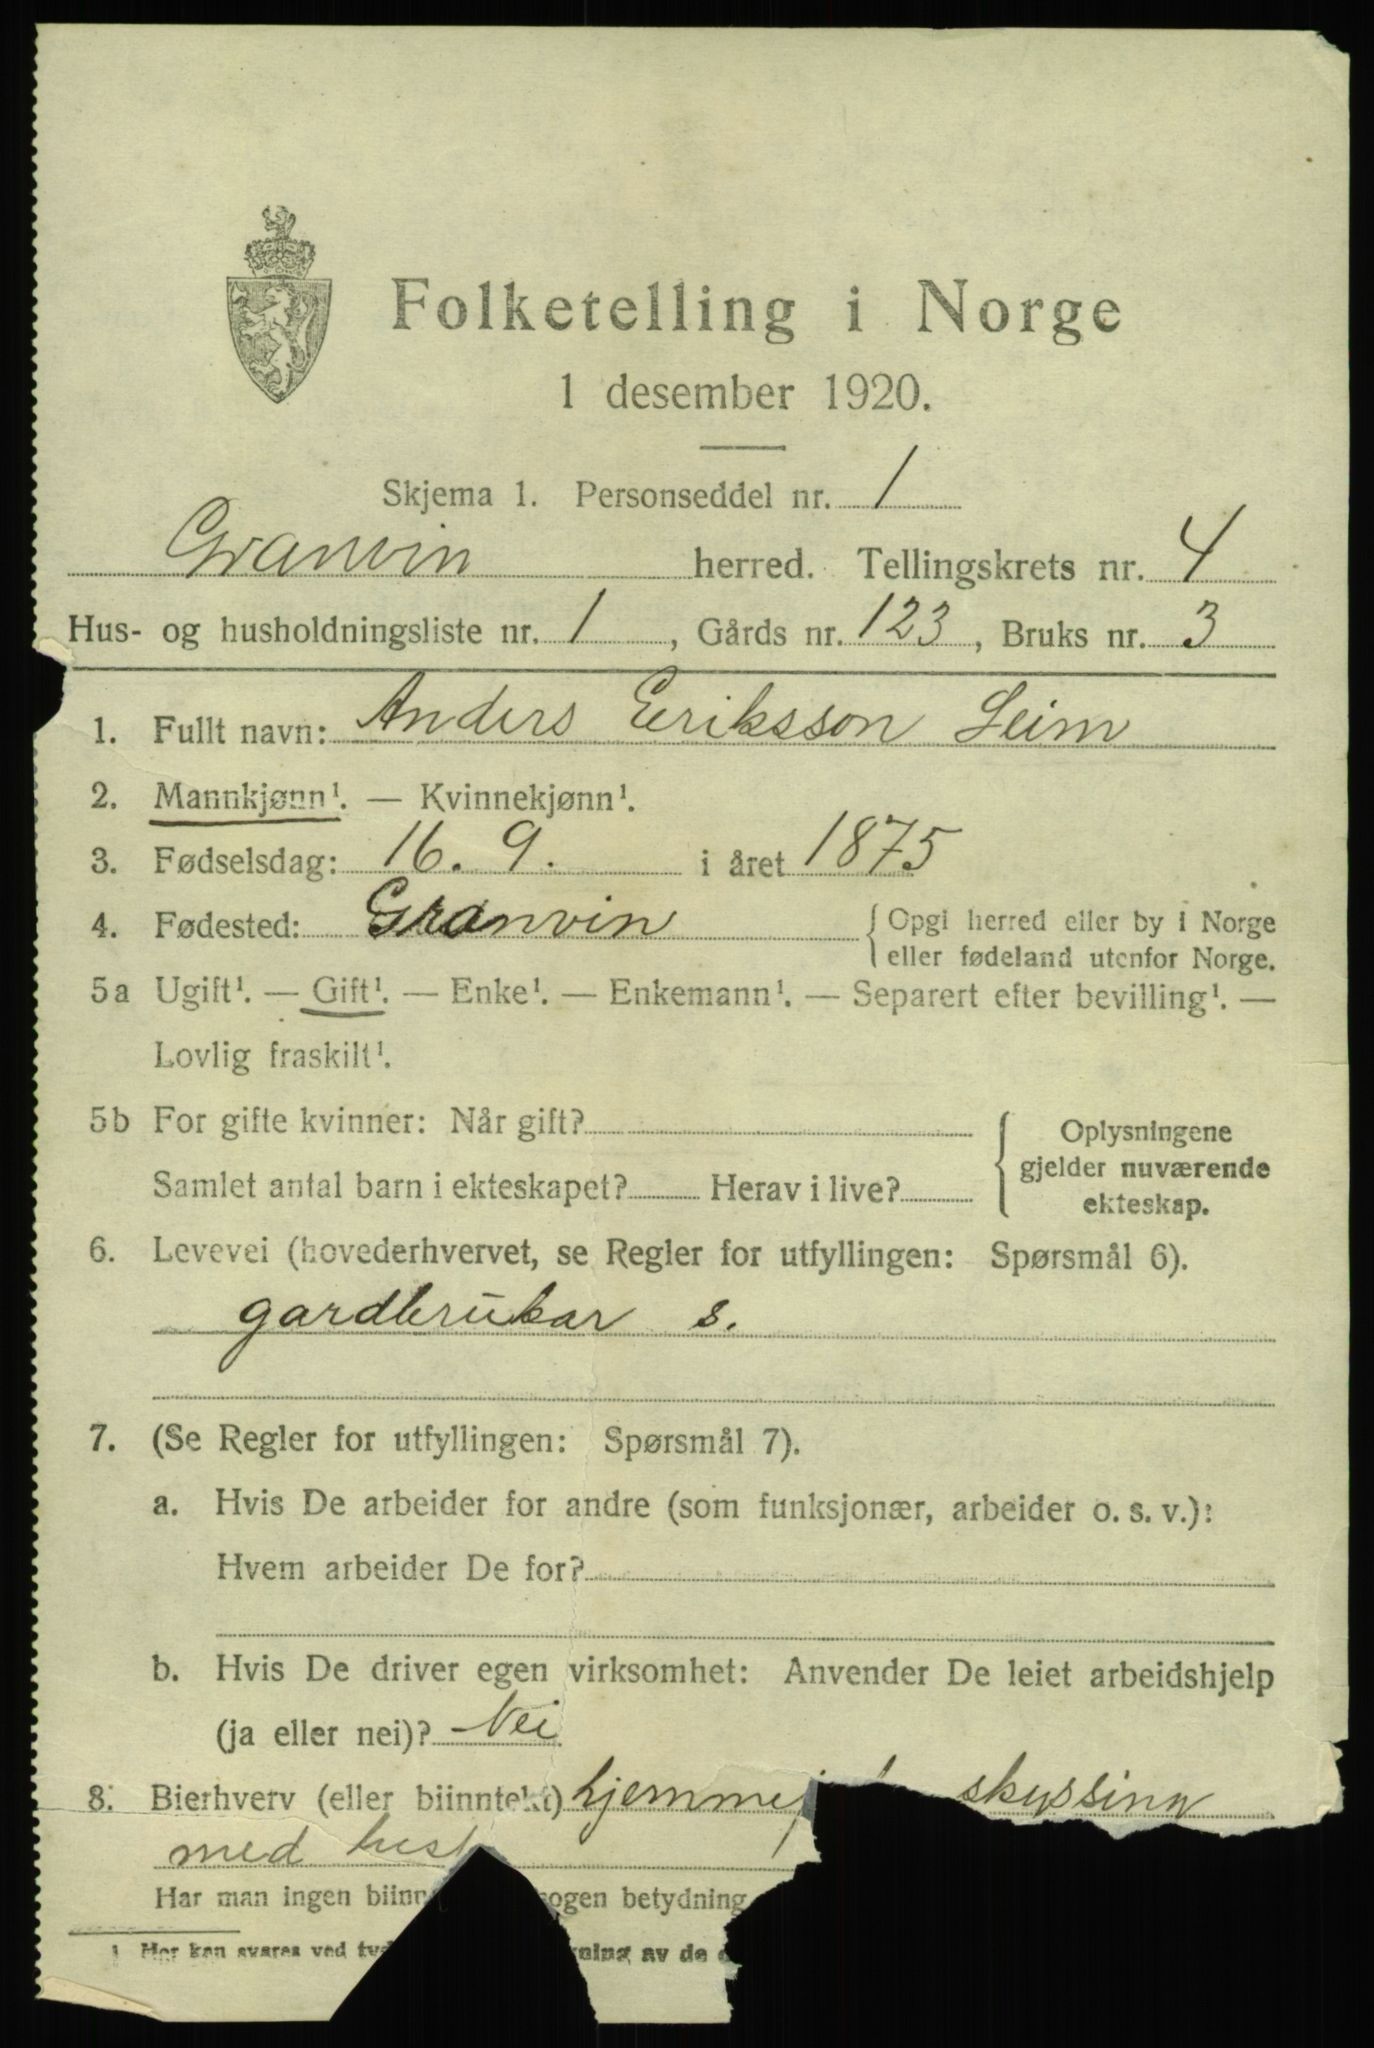 Folketelling i Norge
1 desember 1920.
Skjema 1. Personseddel nr. 1
Granvin herred. Tellingskrets nr. 4
Hus- og husholdningsliste nr. 1, Gårds nr. 123, Bruks nr. 3
1. Fullt navn: Anders Eriksson Seim
2. Mannkjønn¹. — Kvinnekjønn¹.
3. Fødselsdag: 16. 9. i året 1875
4. Fødested: Granvin { Opgi herred eller by i Norge
eller fødeland utenfor Norge.
5a Ugift¹. — Gift¹. — Enke¹. — Enkemann¹. — Separert efter bevilling¹. —
Lovlig fraskilt¹.
5b For gifte kvinner: Når gift?
Samlet antal barn i ekteskapet? Herav i live?
Oplysningene
gjelder nuværende
ekteskap.
6. Levevei (hovederhvervet, se Regler for utfyllingen: Spørsmål 6).
gardbrukar s.
7. (Se Regler for utfyllingen: Spørsmål 7).
a. Hvis De arbeider for andre (som funksjonær, arbeider o. s. v.):
Hvem arbeider De for?
b. Hvis De driver egen virksomhet: Anvender De leiet arbeidshjelp
(ja eller nei)? Nei
8. Bierhverv (eller biinntekt) skyssing
med hest
Har man ingen betydning
1 Her kan svares ved av de